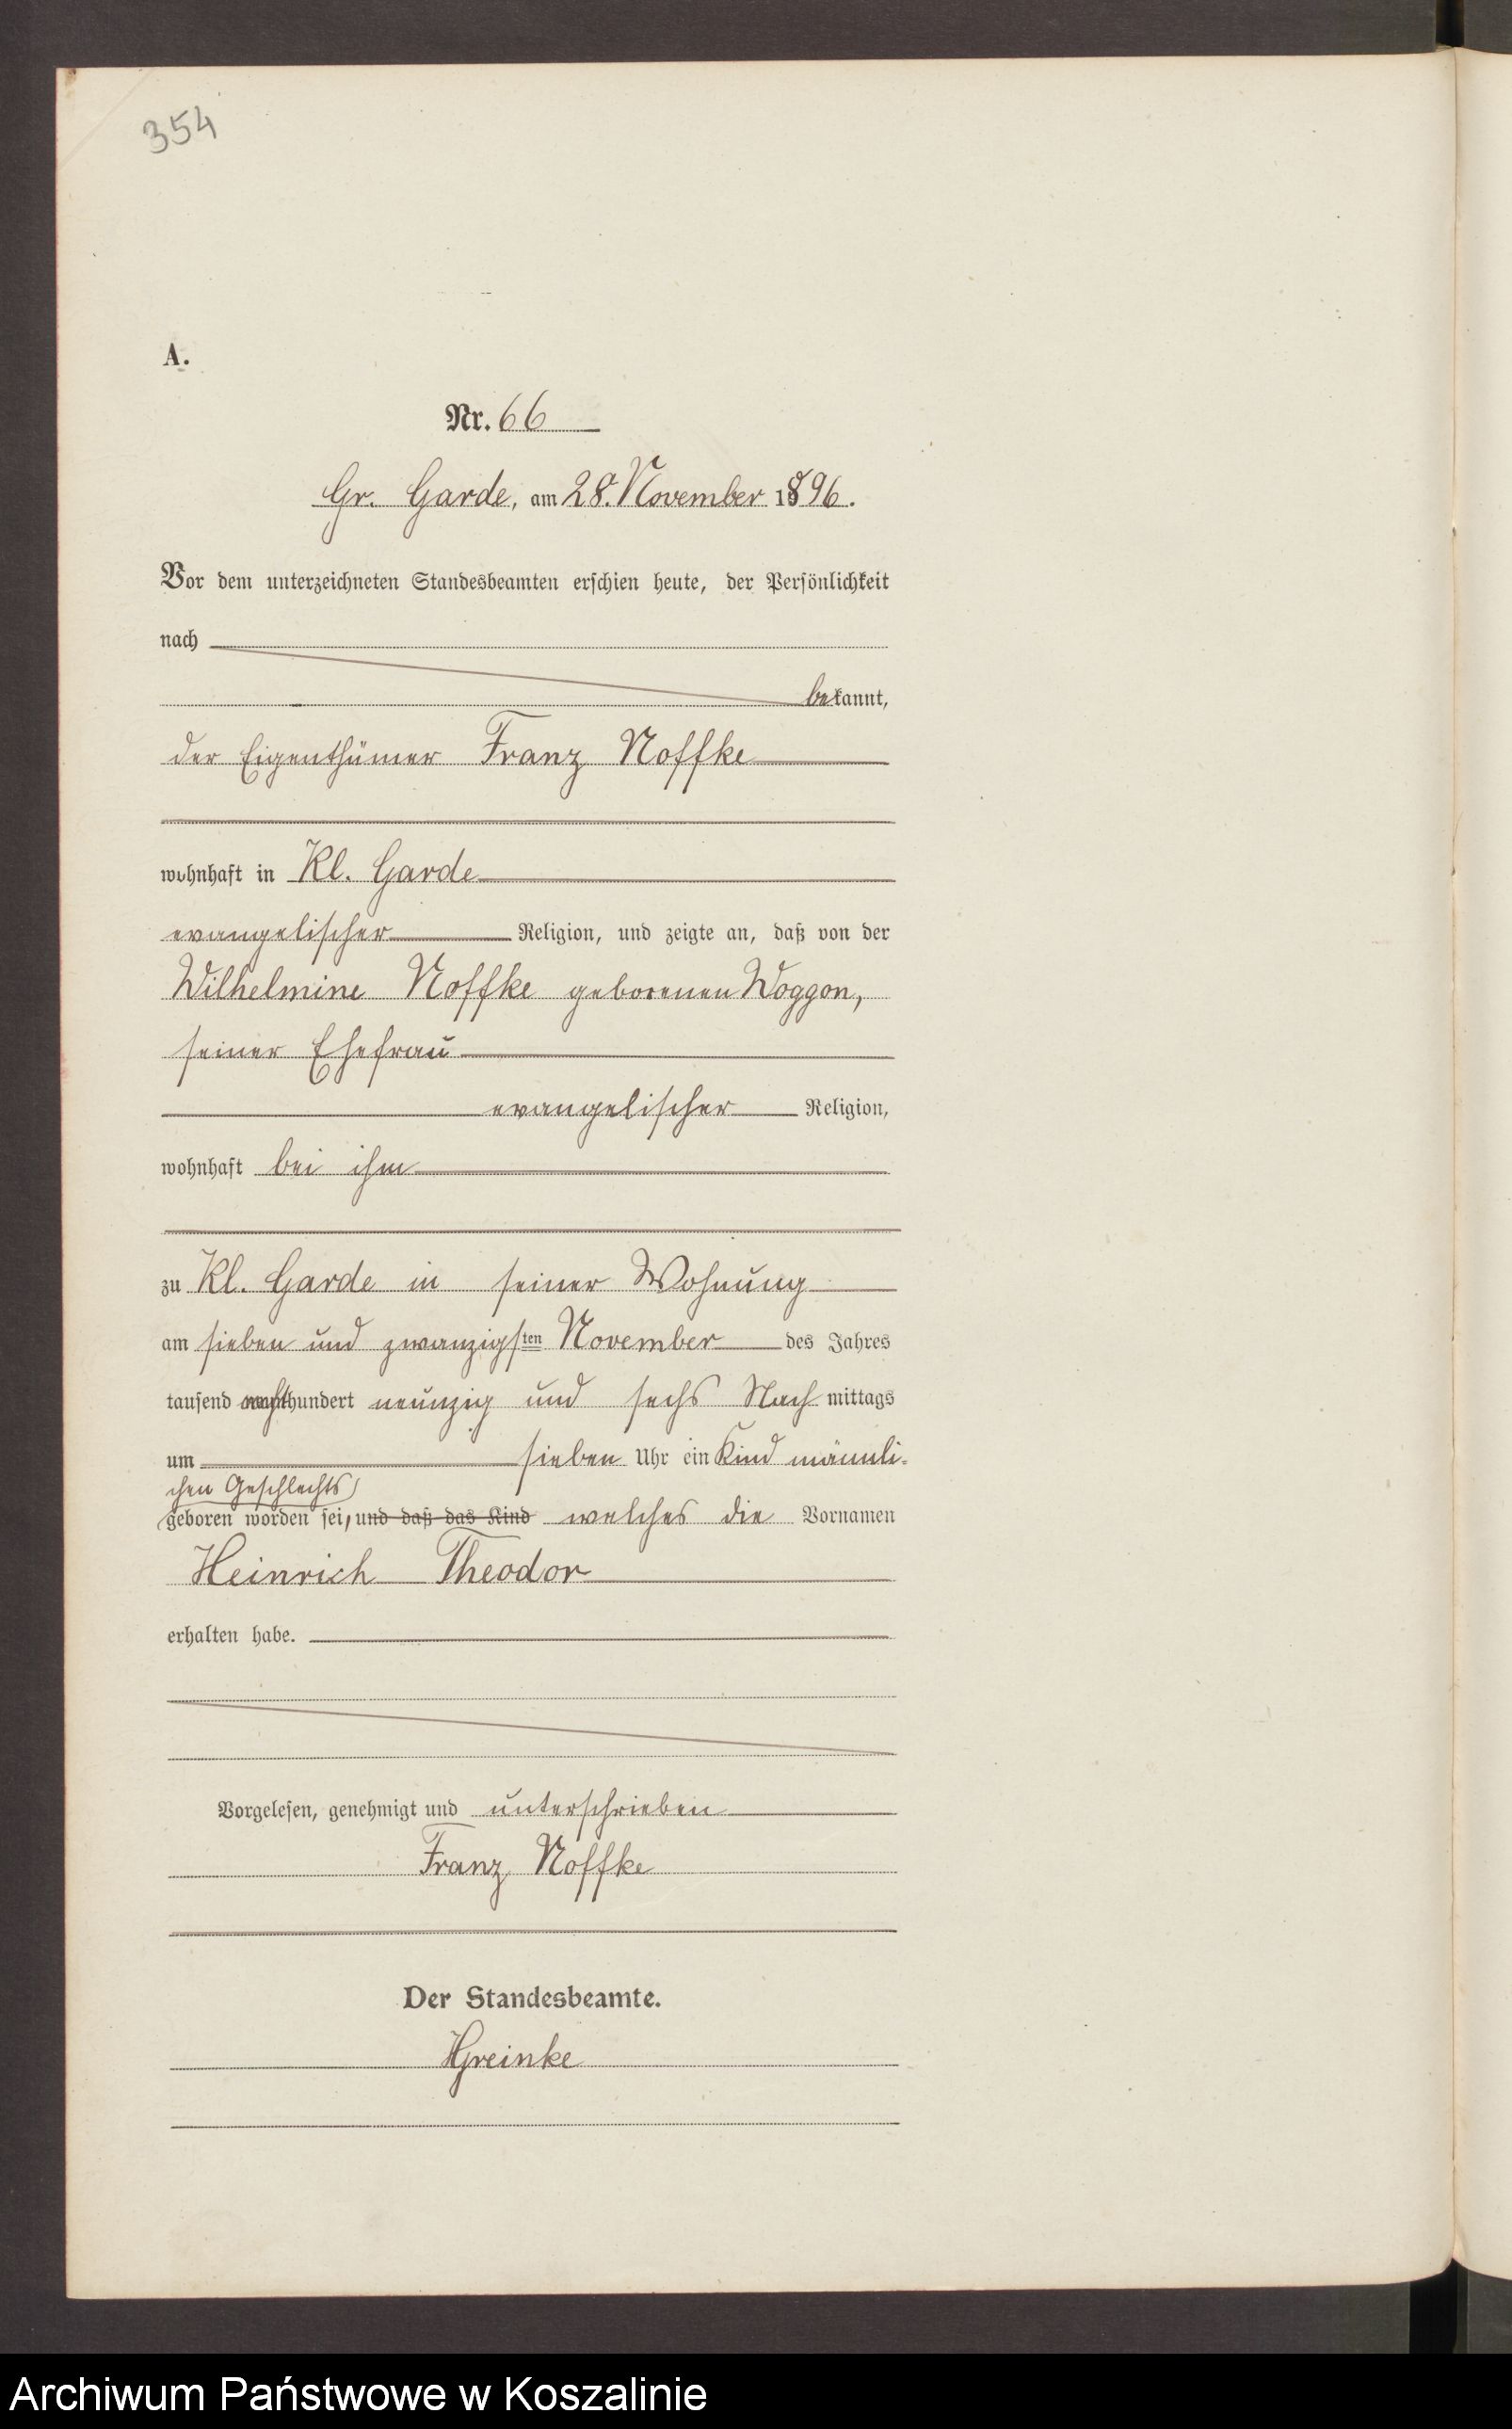 354
A.
Nr. 66
Gr. Garde, am 28. November 1896.
Vor dem unterzeichneten Standesbeamten erschien heute, der Persönlichkeit
nach
bekannt,
der Eigenthümer Franz Noffke
wohnhaft in Kl. Garde
evangelischer Religion, und zeigte an, daß von der
Wilhelmine Noffke geborenen Woggon,
seiner Ehefrau
evangelischer Religion,
wohnhaft bei ihm
zu Kl. Garde in seiner Wohnung
am sieben und zwanzigsten November des Jahres
tausend achthundert neunzig und sechs Nachmittags
um sieben Uhr ein Kind männli-
chen Geschlechts
geboren worden sei, und daß das Kind welches die Vornamen
Heinrich Theodor
erhalten habe.
Vorgelesen, genehmigt und unterschrieben
Franz Noffke
Der Standesbeamte.
Greinke
Archiwum Państwowe w Koszalinie